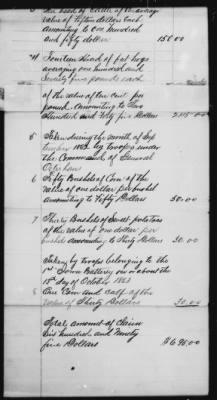 3 Ten head of Cattle of average
value of fifteen dollars each
amounting to one hundred
and fifty dollars 150.00
4 Fourteen head of fat hogs
averaging one hundred and
Seventy five pounds each
of the value of ten cent per
pound. amounting to Two
Hundred and Forty five Dollars 245.00
5 Taken during the month of Sep
tember 1863 by troops under
the Command of General
6 Fifty Bushels of Corn of the
value of one dollar per bushel
amounting to Fifty Dollars 50.00
7 Thirty Bushels of Sweet potatoes
of the value of one dollar per
bushels amounting to Thirty Dollars 30.00
Taken by troops belonging to the
1st Iowa Battery on or about the
15th day of October 1863
8 One Cow and calf of the
value of Thirty Dollars 30.00
Total amount of Claim
Six hundred and Ninety
five Dollars $695.00